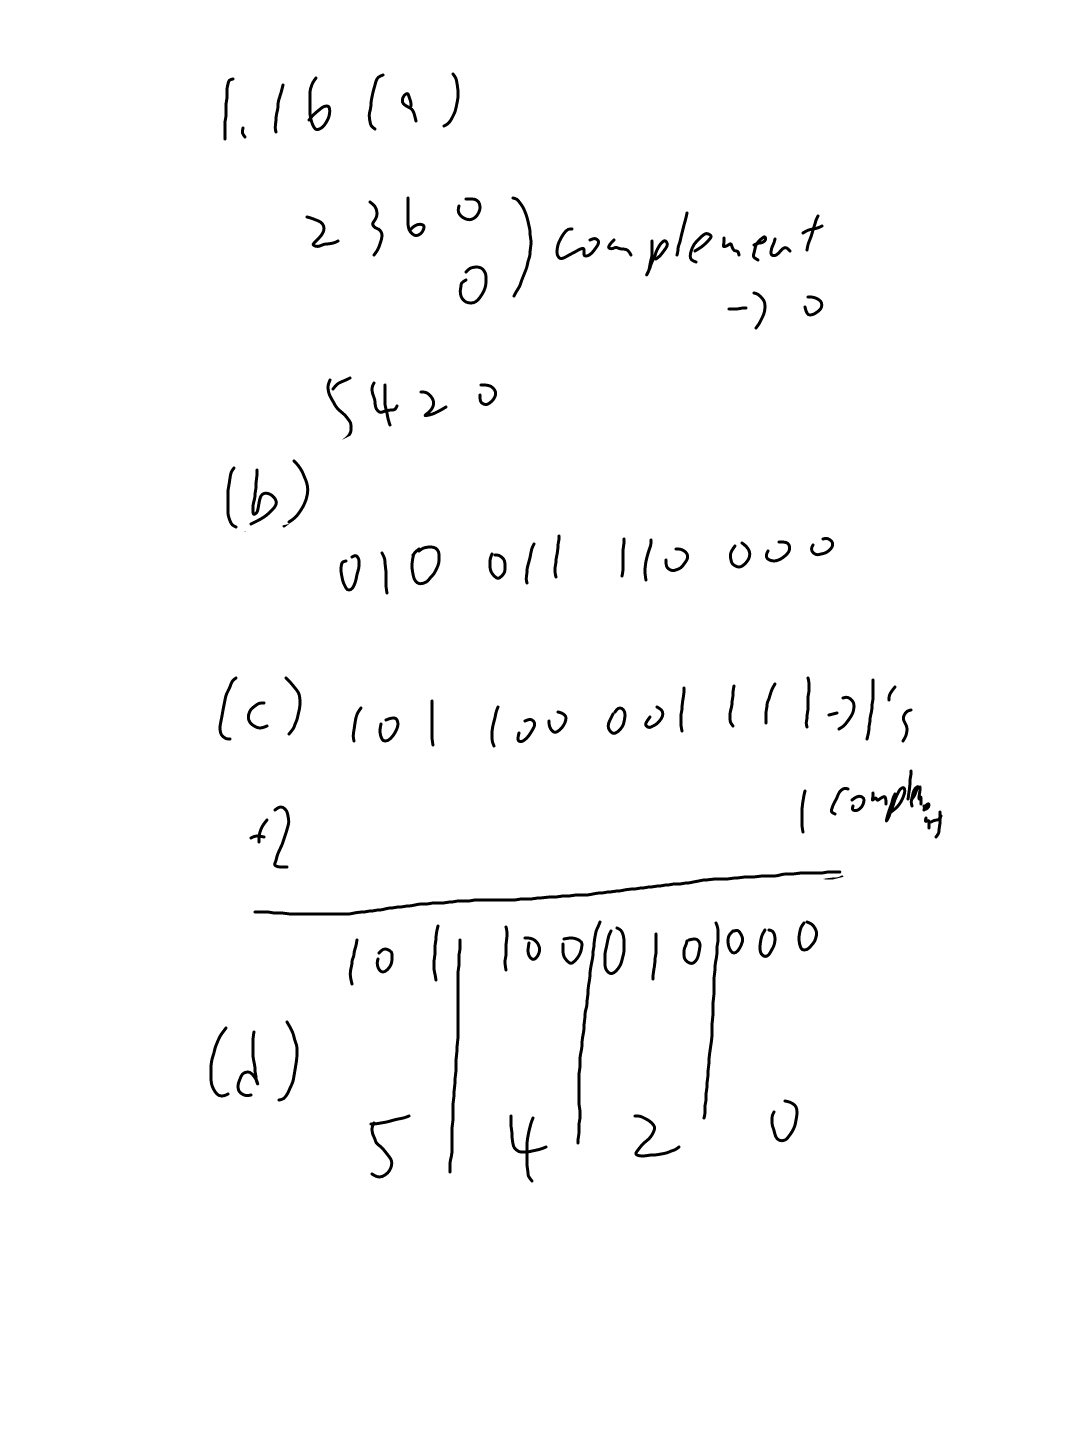 1.16 (a)
2 3 6 0 ) complement
0 → 0
5 4 2 0
(b)
010 011 110 000
(c) 101 100 001 111 → 1's
1 complement
+2
101 | 100 | 010 | 000
(d)
5 4 2 0